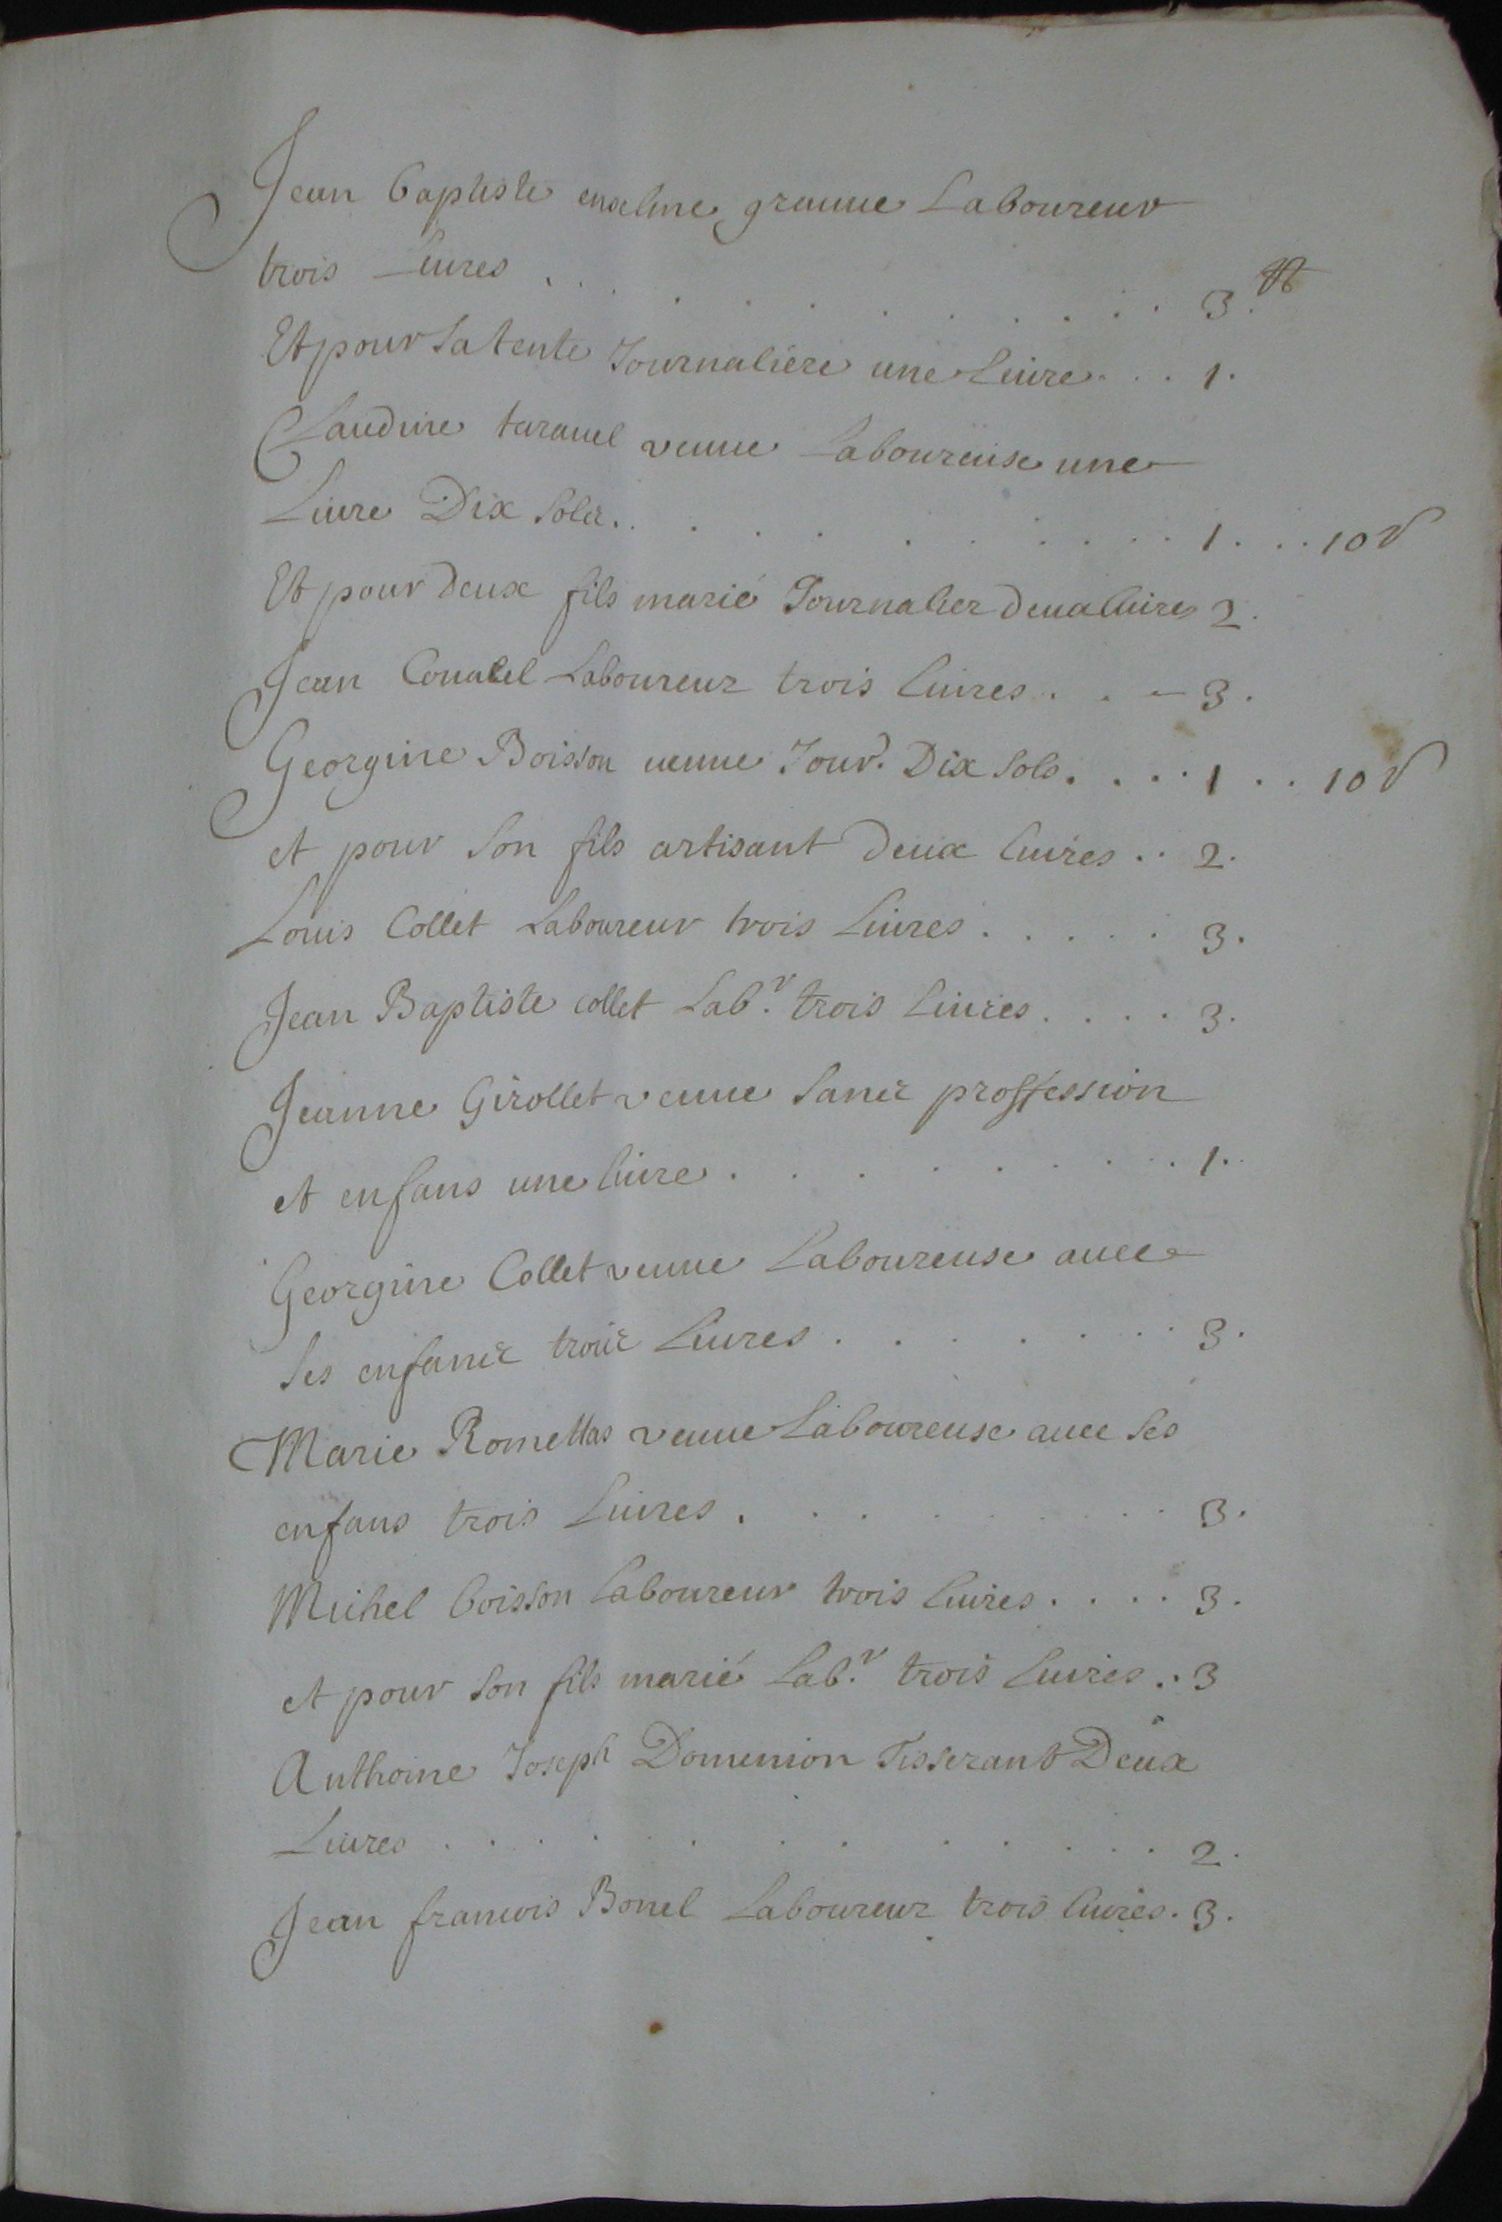 Jean Baptiste emeline grauue Laboureur
trois Liures . . . . . . . . . . . 3.₶
Et pour sa tente Journaliere une Liure . . . 1.
Claudine tarauel veuue Laboureuse une
Liure Dix sols . . . . . . . . . 1. . . 10 s
Et pour deux fils marié Journalier deux liures 2.
Jean Laboureur trois liures . . - 3.
Georgine Boisson ueuue Jour.^r Dix sols . . . . 1 . . 10 s
et pour son fils artisant deux liures . . 2.
Louis Collet Laboureur trois Liures . . . . . 3.
Jean Baptiste collet Lab.^r trois Liures . . . . 3.
Jeanne Girollet veuue sans proffession
et enfans une liure . . . . . . . . 1.
Georgine Collet veuue Laboureuse auec
ses enfans trois Liures . . . . . . . 3.
Marie Romettas veuue Laboureuse auec ses
enfans trois Liures . . . . . . . . 3.
Michel boisson Laboureur trois liures . . . . 3.
et pour son fils marié Lab.^r trois Liures . . 3
Anthoine Joseph Domenion Tisserant Deux
Liures . . . . . . . . . . . 2.
Jean francois Bonel Laboureur trois liures . 3.